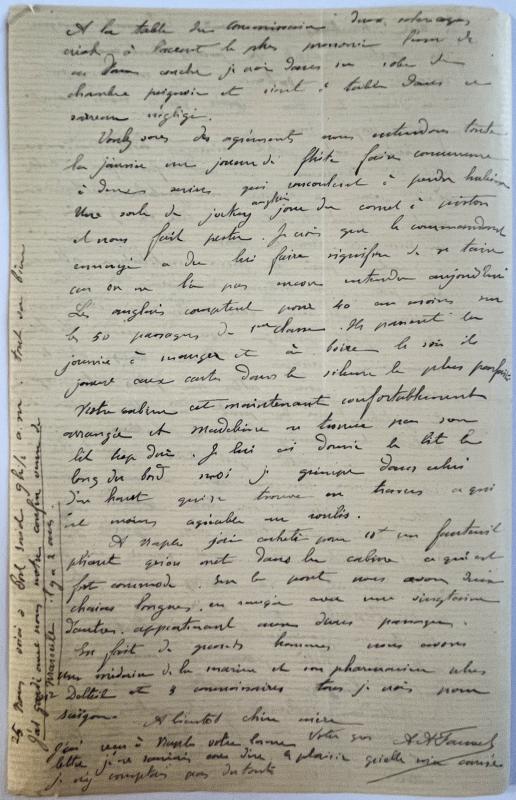 A la table du commissaire deux
à l'accent le plus prononcé. L'une de
ces Dames couche je crois dans sa robe de
chambre peignoir et vient à table dans ce
négligé.
Voulez vous des agréments nous entendons toute
la journée un joueur de flûte faire concurrence
à deux serins qui roucoulent à perdre haleine
Une sorte de jockey anglais joue du cornet à piston
et nous fait pester. Je crois que le commandant
enragé a dû lui faire signifier de se taire
car on ne l'a pas encore entendu aujourd'hui
Les anglais comptent pour 40 au moins sur
les 50 passagers de 1ère classe. Ils passent la
journée à manger et à boire le soir ils
jouent aux cartes dans le silence le plus parfait
Notre cabine est maintenant confortablement
arrangée et Madeleine ne trouve pas son
lit trop dur. Je lui ai donné le lit le
long du bord moi je grimpe dans celui
d'en haut qui se trouve en travers ce qui
est moins agréable au roulis.
A Naples j'ai acheté pour 10f un fauteuil
pliant qu'on met dans la cabine ce qui est
fort commode. Sur le pont nous avons deux
chaises longues, en rangée avec une vingtaine
d'autres appartenant aux dames passagères.
En fait de grands hommes nous avons
un médecin de la marine et son pharmacien
Delteil et 3 commissaires tous je crois pour
Saïgon.
A bientôt chère mère
Votre
j'ai reçu à Naples votre bonne
lettre je ne saurais vous dire le plaisir qu'elle m'a causé
je n'y comptais pas du tout
25 Nous voici à Port Saïd 9h½ a.m. tout va bien
j'ai gardé
Marseille il y a 2 ans.